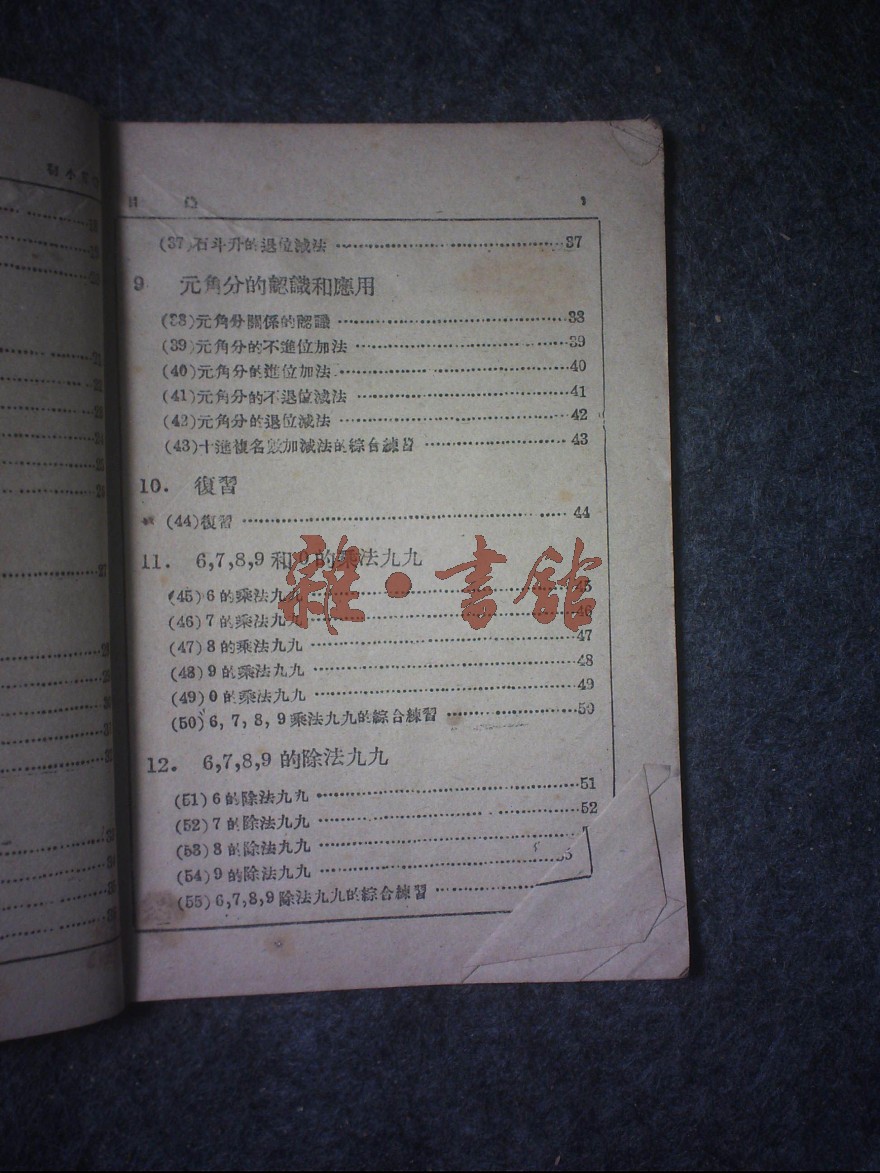 目
(37)石斗升的退位減法 37
9 元角分的認識和應用
(38)元角分關係的認識 38
(39)元角分的不進位加法 39
(40)元角分的進位加法 40
(41)元角分的不退位減法 41
(42)元角分的退位減法 42
(43)十進複名數加減法的綜合練習 43
10. 復習
(44)復習 44
11. 6,7,8,9和0的乘法九九
(45)6的乘法九九 45
(46)7的乘法九九 46
(47)8的乘法九九 47
(48)9的乘法九九 48
(49)0的乘法九九 49
(50)6,7,8,9乘法九九的綜合練習 50
12. 6,7,8,9的除法九九
(51)6的除法九九 51
(52)7的除法九九 52
(53)8的除法九九
(54)9的除法九九
(55)6,7,8,9除法九九的綜合練習
雜·書館